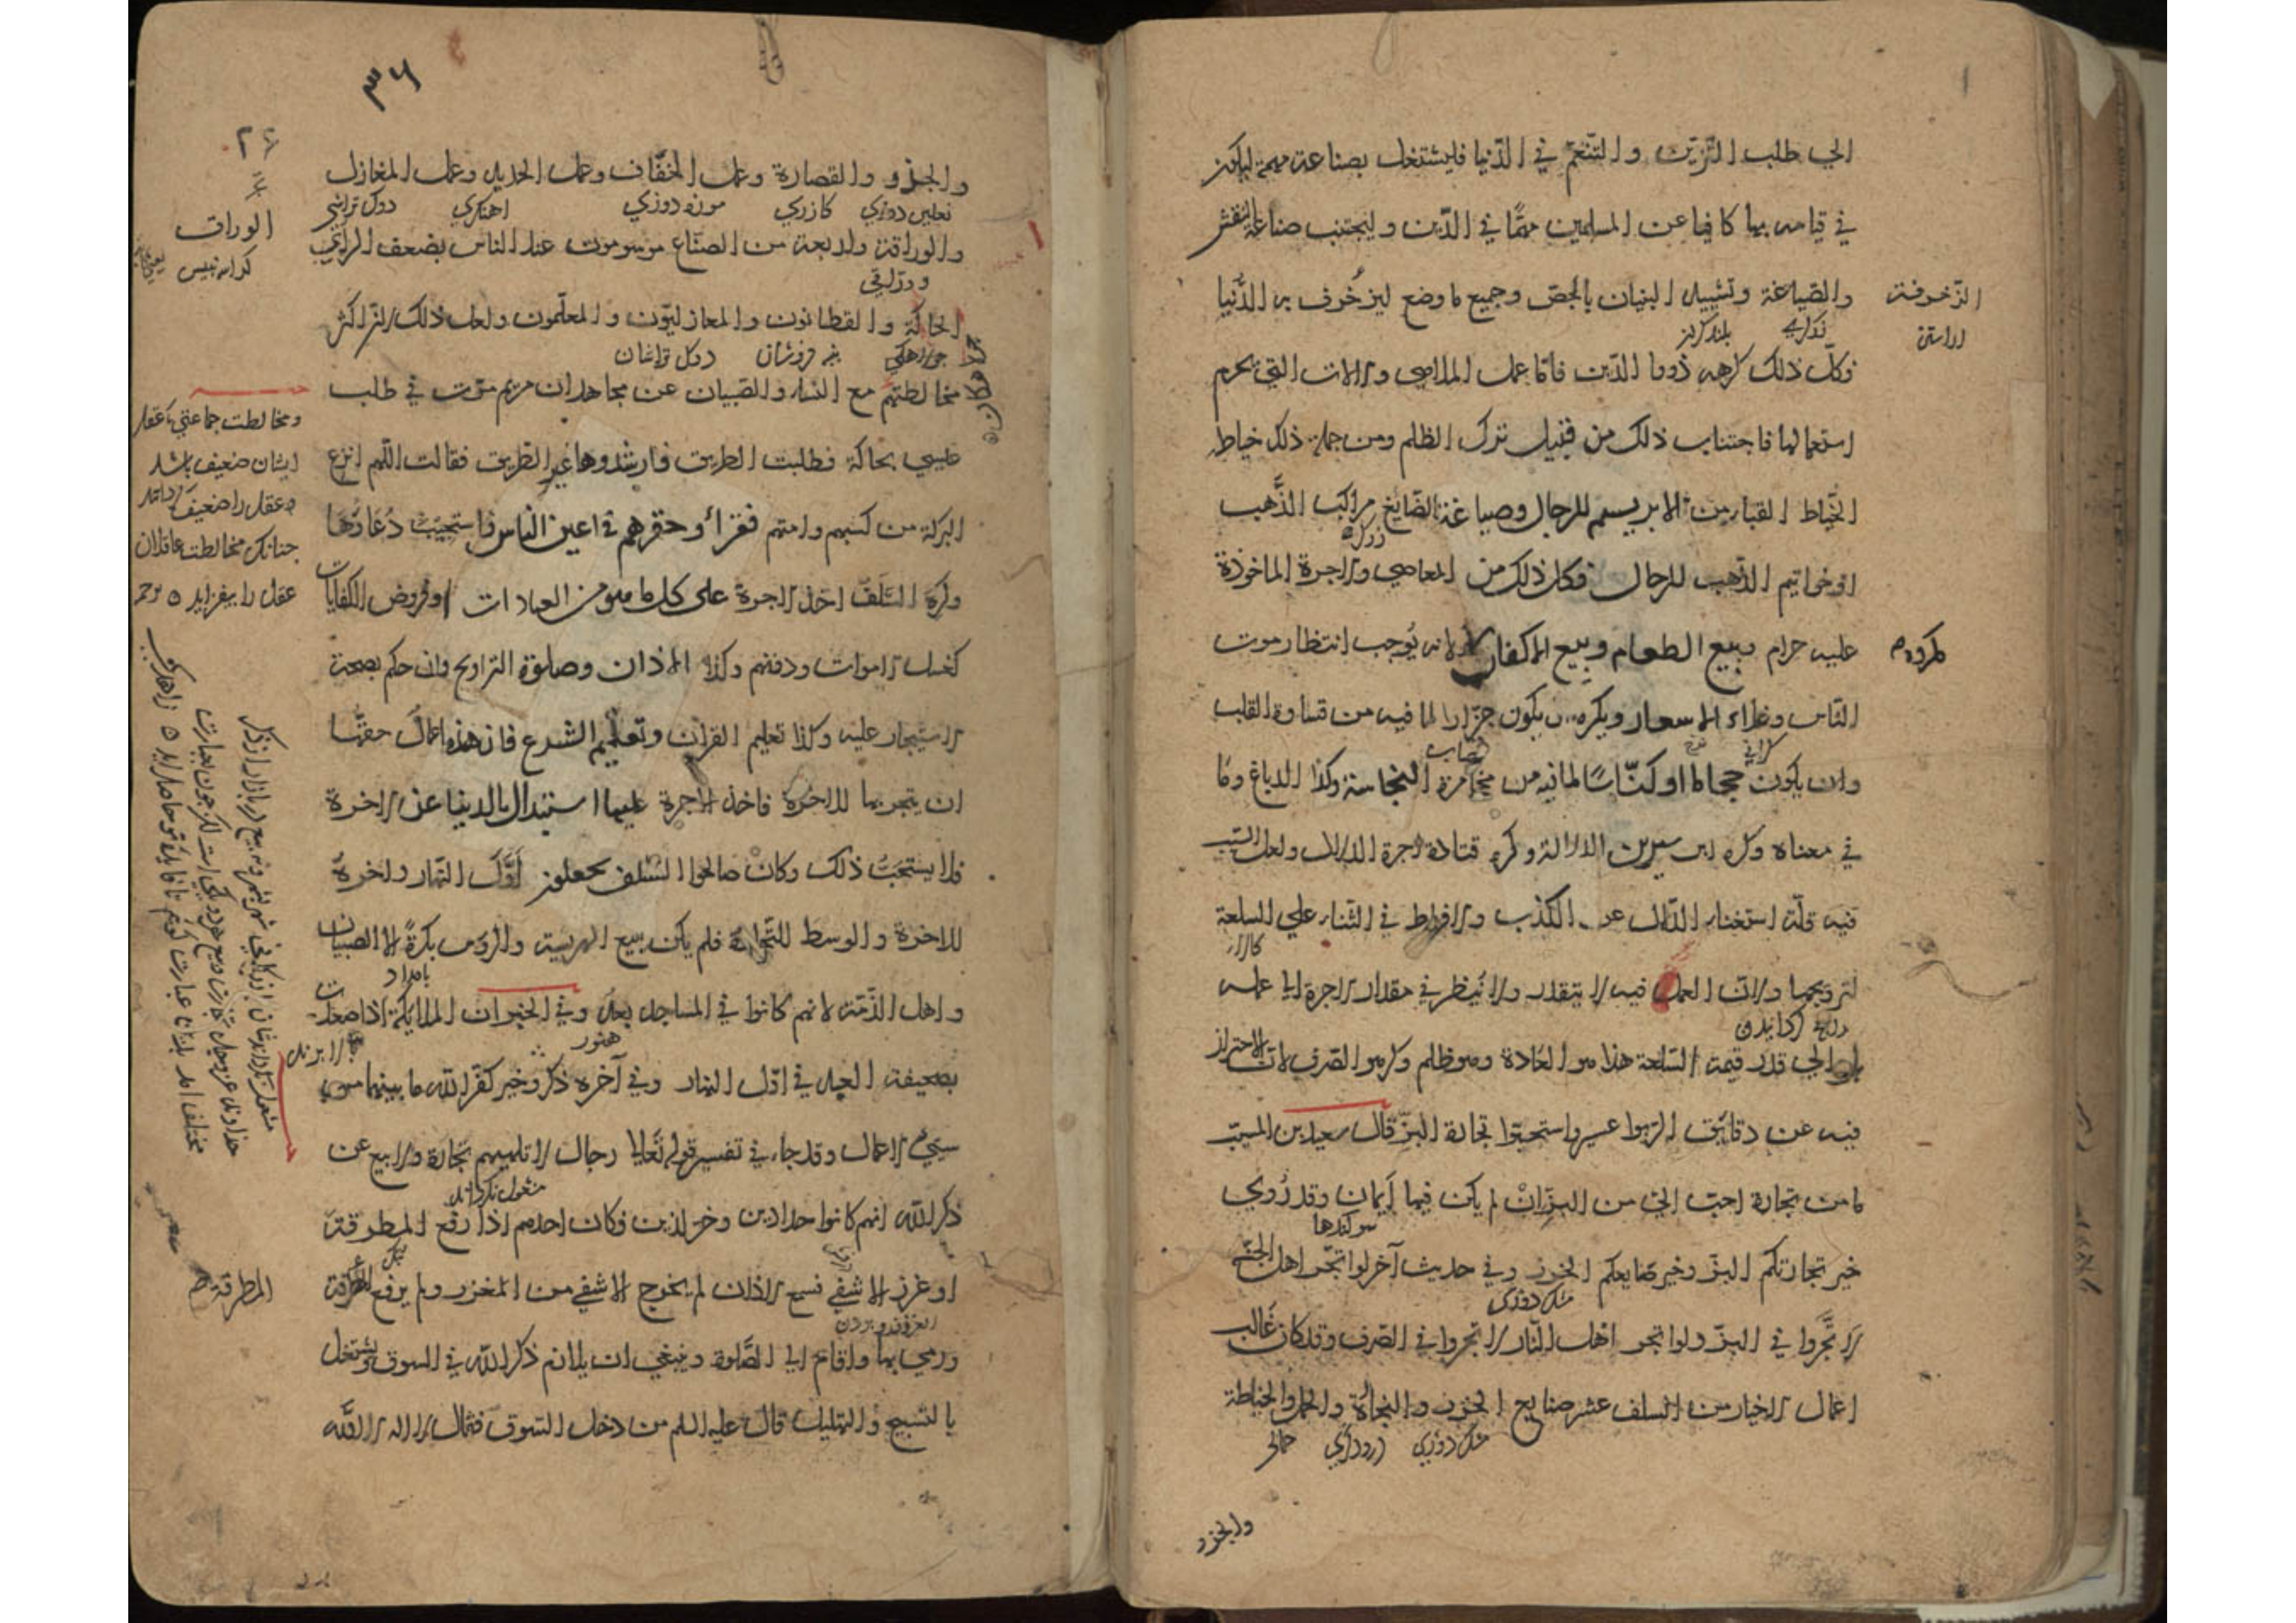 الي طلب التزين والتنعم في الدنيا فليشتغل بصناعة مهمة ليكون
في قيامه بها كافيا عن المسلمين مهمًا في الدّين وليجتنب صناعة النقش
والصياغة وتشييد البنيان بالجصّ وجميع ما وضع ليزخرف به الدُّنيا
الزخرفة
بلند كردن
فكلّ ذلك كرهه ذووا الدّين فامّا عمل الملاهي والالات التي يحرم
استعمالها فاجتناب ذلك من قبيل ترك الظلم ومن جملة ذلك خياطة
الخيّاط القباء من الابريسم للرجال وصياغة الصّايغ مراكب الذَّهب
زركر
اوخواتيم الذّهب للرجال فكل ذلك من المعاصي والاجرة الماخوذة
عليه حرام وبيع الطعام وبيع الاكفان لانه يُوجب انتظار موت
مكروه
النّاس وغلاء الاسعار ويكره ان يكون جزّارا لما فيه من قساوة القلب
كراني
قصاب
وان يكون حجاما او كنّاسًا لما فيه من مخامرة النجاسة وكذا الدباغ وما
في معناه وكره ابن سيرين الدلالة وكره قتادة اجرة الدلال ولعل السّبب
فيه قلّة استغناء الدّلال عن الكذب والافراط في الثناء علي السلعة
كالا
لترويجها ولانّ العمل فيه لا يتقدر ولا يُنظر في مقدار الاجرة الي عمله
بل الي قدر قيمة السّلعة هذا هو العادة وهو ظلم وكرهوا الصّرف لانّ الاحتراز
فيه عن دقايق الربوا عسير واستحبّوا تجارة البزّ قال سعيد بن المسيّب
ما من تجارة احبّ اليّ من البزّ ان لم يكن فيها أيمان وقد رُوي
سوكندها
خير تجارتكم البزّ وخير صنايعكم الخرز وفي حديث آخر لو اتّجر اهل الجنّة
مشك دوزي
لاتّجروا في البزّ ولو اتجر اهل النّار لاتجروا في الصّرف وقد كان غالب
اعمال الاخيار من السلف عشر صنايع الخرز والتجارة والحمل والخياطة
مشك دوزي
حمالي
والحذو
٣٦
٣٤
والحذو والقصارة وعمل الخفّاف وعمل الحديد وعمل المغازل
نعلين دوزي كازري موزه دوزي اهنكري دوك تراشي
والوراقة واربعة من الصنّاع موسومون عند الناس بضعف الراي
ورّاقي
الوراق
الحاكة والقطانون والمغازليّون والمعلّمون ولعل ذلك لانّ اكثر
پنبه فروشان دوك تراشان
مخالطتهم مع النساء والصّبيان عن مجاهد ان مريم مرّت في طلب
ومخالطت جماعتي كه عقل
ايشان ضعيف باشد
عقل را ضعيف كرداند
چنانكه مخالطت عاقلان
عقل را بيفزايد
عيسي بحاكة فطلبت الطريق فارشدوها غير الطريق فقالت اللّهم انزع
البركة من كسبهم وامتهم فقراء وحقرهم في اعين الناس فاستجيب دُعاؤها
وكره السّلف اخذ الاجرة على كل ما هو من العبادات او فروض الكفايات
كغسل الاموات ودفنهم وكذا الاذان وصلوة التراويح وان حكم بصحة
الاستيجار عليه وكذا تعليم القران وتعليم الشرع فان هذه اعمال حقّها
ان يتجر بها للاخرة فاخذ الاجرة عليها استبدال بالدنيا عن الاخرة
فلا يستحبّ ذلك وكان صالحوا السّلف يجعلون اوّل النّهار واخره
للاخرة والوسط للتّجارة فلم يكن يبيع الهريسة والرؤس بكرةً الا الصّبيان
بامداد
واهل الذّمّة لانهم كانوا في المساجد بعد وفي الخبر ان الملايكة اذا صعدت
هنوز
بصحيفة العبد في اوّل النهار وفي آخره ذكر وخير كفّر اللّه ما بينهما من
سيّئ الاعمال وقد جاء في تفسير قوله تعالى رجال لا تلهيهم تجارة ولا بيع عن
ذكر اللّه انهم كانوا حدادين وخرازين فكان احدهم اذا رفع المطرقة
او غرز الاشفي فسمع الاذان لم يخرج الاشفي من المغرز ولم يرفع المطرقة
المطرقة
ورمي بها واقام الي الصّلوة وينبغي ان يلازم ذكر اللّه في السوق ويشتغل
بالتسبيح والتهليل قال عليه السلم من دخل السّوق فقال لا اله الا اللّه